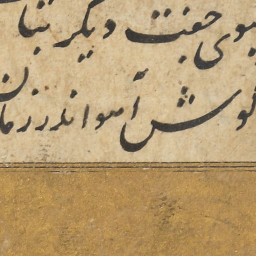 سوی جفت دیگر بتا
گوش آهو اندر زمان